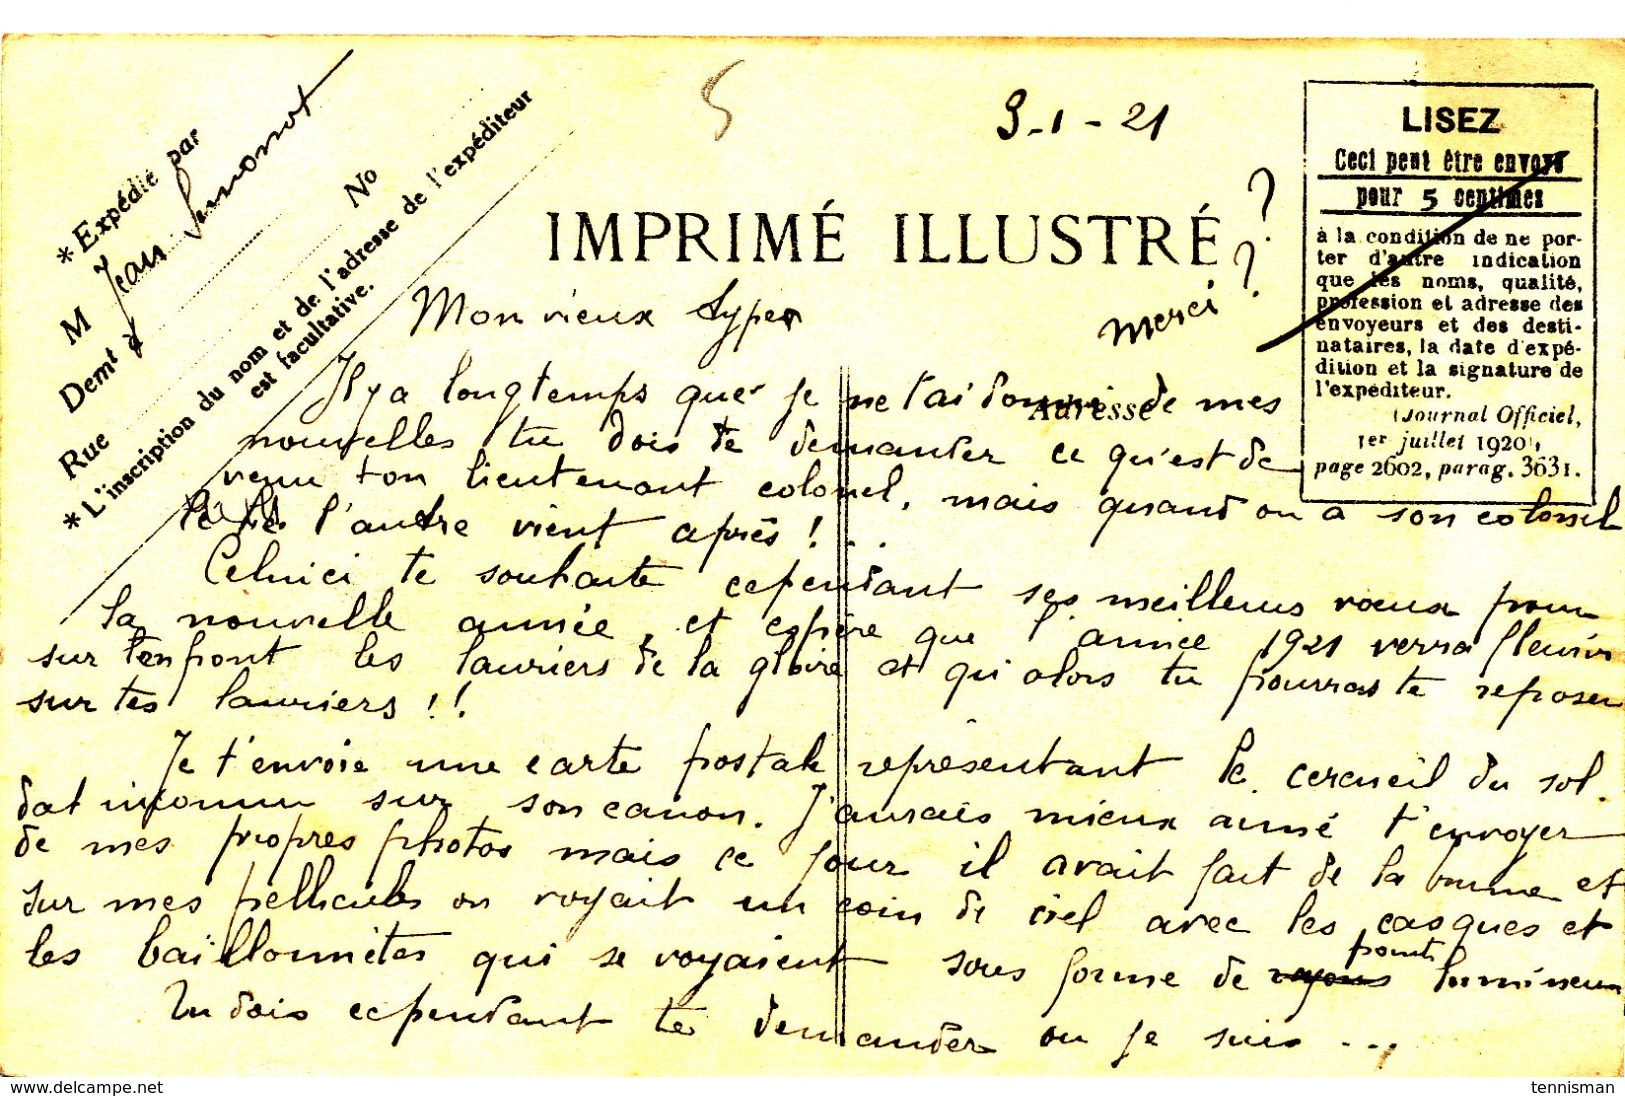 * Expédié par
M Jean
Demt à
Rue
No
* L'inscription du nom et de l'adresse de l'expéditeur
est facultative.
5
9-1-21
IMPRIMÉ ILLUSTRÉ ?
Merci ?
LISEZ
Ceci peut être envoyé
pour 5 centimes
à la condition de ne por-
ter d'autre indication
que les noms, qualité,
profession et adresse des
envoyeurs et des desti-
nataires, la date d'expé-
dition et la signature de
l'expéditeur.
(Journal Officiel,
1er juillet 1920,
page 2602, parag. 3631.
Adresse
Mon vieux
Il y a longtemps que je ne t'ai donné de mes
nouvelles tu dois te demander ce qu'est de
venu ton lieutenant colonel, mais quand on a son colonel
l'autre vient après ! . .
Celui ci te souhaite cependant ses meilleurs vœux pour
la nouvelle année, et espère que l'année 1921 verra fleurir
sur ton front les lauriers de la gloire et qui alors tu pourras te reposer
sur tes lauriers !!
Je t'envoie une carte postale représentant le cercueil du sol.
dat inconnu sur son canon. J'aurais mieux aimé t'envoyer
de mes propres photos mais ce jour il avait fait de la brume et
sur mes pellicules on voyait un coin de ciel avec les casques et
les baïllonnètes qui se voyaient sous forme de rayons points lumineux
Tu dois cependant te demander ou je suis ...
www.delcampe.net
tennisman